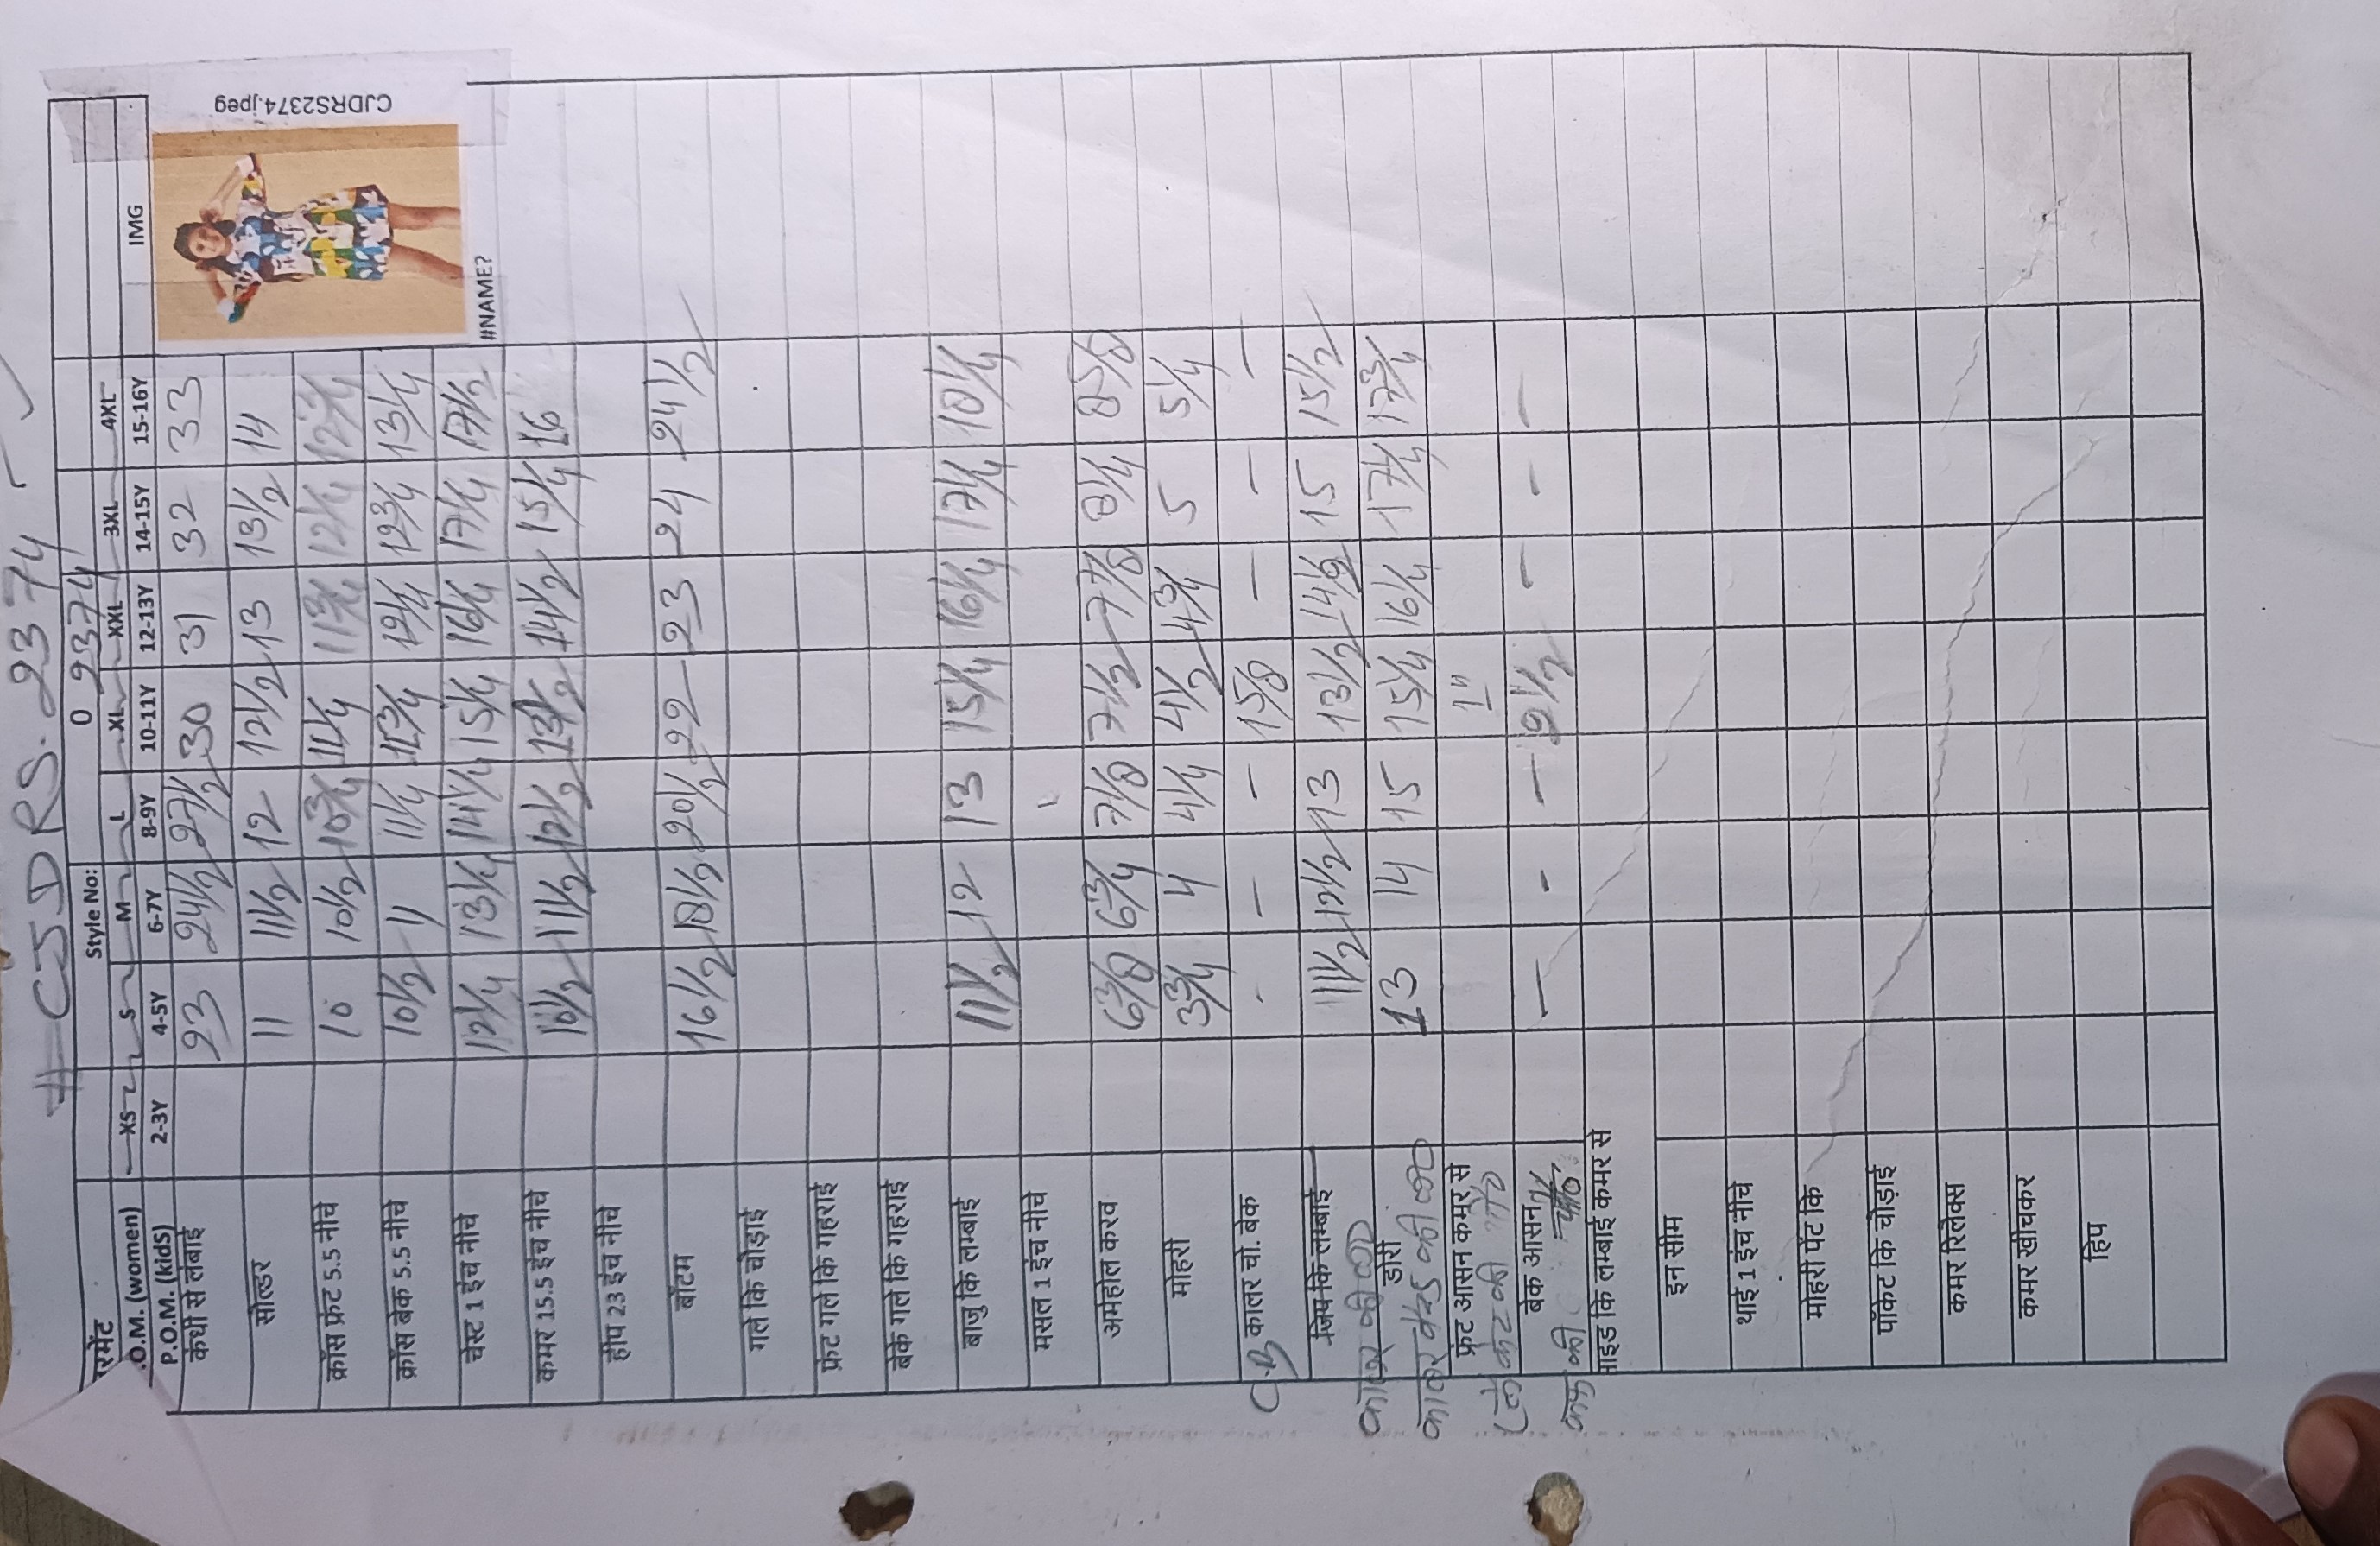 # CJDRS. 2374
Style No: 0 2374
XS S M L XL XXL 3XL 4XL
.O.M. (women)
P.O.M. (kidS) 2-3Y 4-5Y 6-7Y 8-9Y 10-11Y 12-13Y 14-15Y 15-16Y IMG
CJDRS2374.jpeg
#NAME?
कंधी से लंबाई 23 24 1/2 27 1/2 30 31 32 33
सोल्डर 11 11 1/2 12 12 1/2 13 13 1/2 14
क्रॉस फ्रंट 5.5 नीचे 10 10 1/2 10 3/4 11 1/4 11 3/4 12 1/4 12 3/4
क्रॉस बेक 5.5 नीचे 10 1/2 11 11 1/4 11 3/4 12 1/4 12 3/4 13 1/4
चेस्ट 1 इंच नीचे 12 1/4 13 1/4 14 1/4 15 1/4 16 1/4 17 1/4 17 1/2
कमर 15.5 इंच नीचे 10 1/2 11 1/2 12 1/2 13 1/2 14 1/2 15 1/4 16
हीप 23 इंच नीचे
बॉटम 16 1/2 18 1/2 20 1/2 22 23 24 24 1/2
गले कि चोड़ाई
फ्रंट गले कि गहराई
बेके गले कि गहराई
बाजु कि लम्बाई 11 1/2 12 13 15 1/4 16 1/4 17 1/4 18 1/4
मसल 1 इंच नीचे
अर्महोल करव 6 3/8 6 3/4 7 1/8 7 1/2 7 7/8 8 1/4 8 5/8
मोहरी 3 3/4 4 4 1/4 4 1/2 4 3/4 5 5 1/4
CB कालर चो. बेक - - - 1 5/8 - - -
जिप कि लम्बाई 11 1/2 12 1/2 13 13 1/2 14 1/2 15 15 1/2
डोरी 13 14 15 15 1/4 16 1/4 17 1/4 17 3/4
फ्रंट आसन कमर से 1"
बेक आसन - - - 2 1/2 - - -
साइड कि लम्बाई कमर से
इन सीम
थाई 1 इंच नीचे
मोहरी पेंट कि
पॉकेट कि चोड़ाई
कमर रिलेक्स
कमर खीचकर
हिप